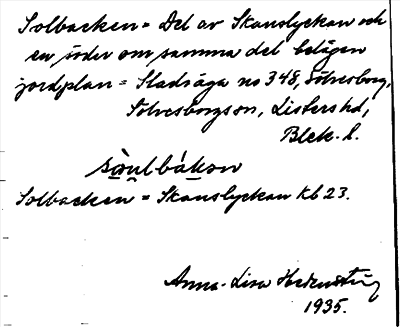 Solbacken = Del av Skanslyckan och
en söder om samma del belägen
jordplan = Stadsäga no 348, Sölvesborg,
Sölvesborgs sn, Listers hd,
Blek. l.
sòulbákən
Solbacken = Skanslyckan Kb 23.
Anna-Lisa
1935.